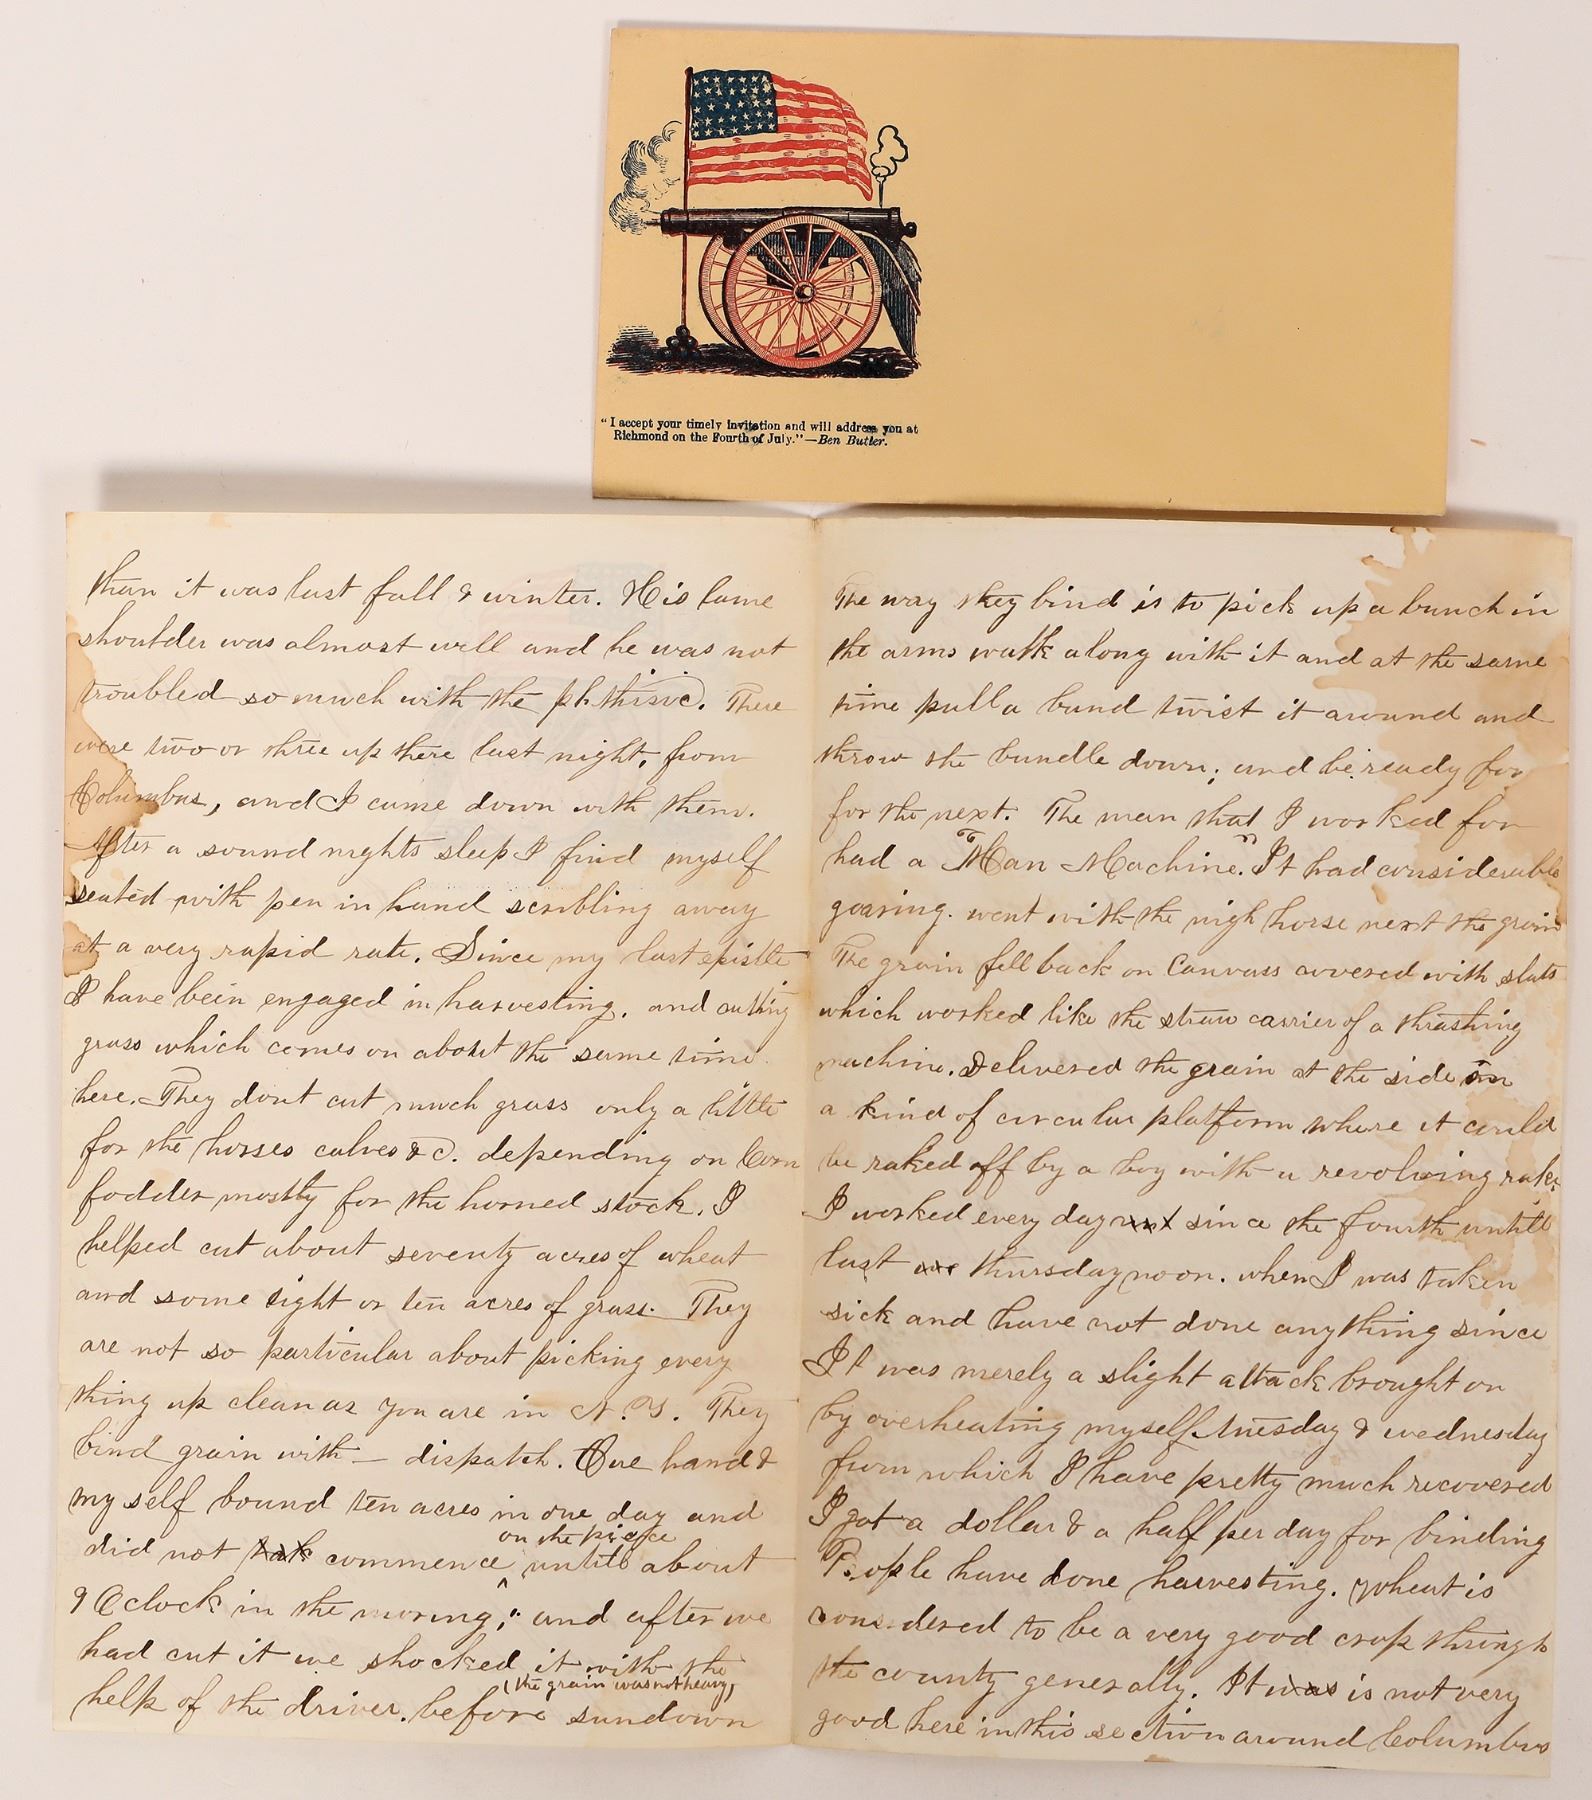 "I accept your timely invitation and will address you at
Richmond on the Fourth of July."—Ben Butler.
than it was last fall & winter. His lame
shoulder was almost well and he was not
troubled so much with the phthisic. There
were two or three up there last night, from
Columbus, and I came down with them.
After a sound nights sleep I find myself
seated with pen in hand scribbling away
at a very rapid rate. Since my last epistle
I have been engaged in harvesting, and cutting
grass which comes on about the same time
here. They dont cut much grass only a little
for the horses calves &c. depending on Corn
fodder mostly for the horned stock. I
helped cut about seventy acres of wheat
and some eight or ten acres of grass. They
are not so particular about picking every
thing up clean as you are in N.Y. They
bind grain with — dispatch. One hand &
my self bound ten acres in one day and
on the piece
did not commence until about
9 Oclock in the morning, and after we
had cut it we shocked it with the
(the grain was not heavy)
help of the driver. before sundown
The way they bind is to pick up a bunch in
the arms walk along with it and at the same
time pull a band twist it around and
throw the bundle down; and be ready for
for the next. The man that I worked for
had a "Man Machine". It had considerable
gearing. went with the nigh horse next the grain
The grain fell back on Canvass covered with slats
which worked like the straw carrier of a thrashing
machine. Delivered the grain at the side on
a kind of circular platform where it could
be raked off by a boy with a revolving rake
I worked every day since the fourth untill
last thursday noon. when I was taken
sick and have not done any thing since
It was merely a slight attack brought on
by overheating myself tuesday & wednesday
from which I have pretty much recovered
I got a dollar & a half per day for binding
People have done harvesting. Wheat is
considered to be a very good crop through
the county generally. It was is not very
good here in this section around Columbus